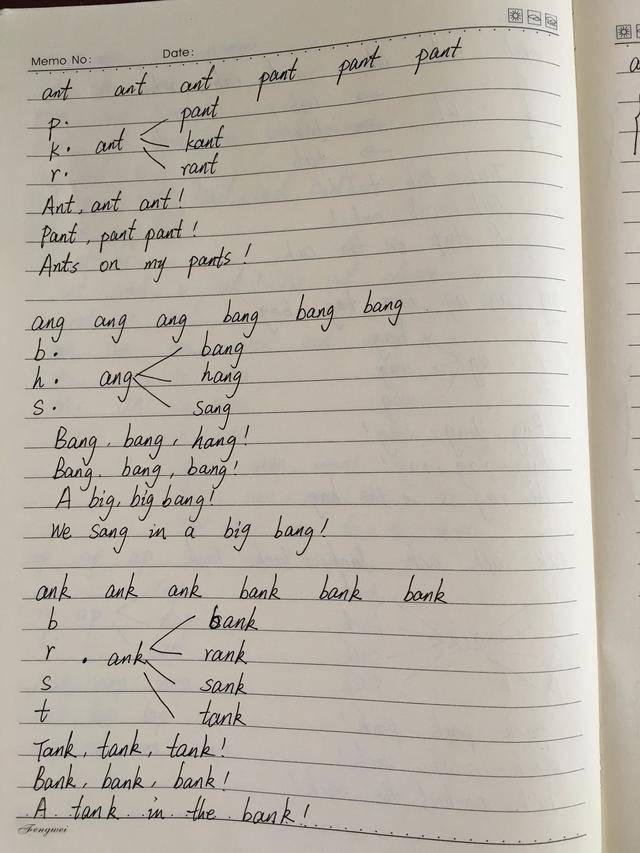 Memo No: Date:
ant ant ant pant pant pant
p. pant
k. ant kant
r. rant
Ant, ant ant!
Pant, pant pant!
Ants on my pants!
ang ang ang bang bang bang
b. bang
h. ang hang
s. sang
Bang, bang, hang!
Bang, bang, bang!
A big, big bang!
We sang in a big bang!
ank ank ank bank bank bank
b bank
r . ank rank
s sank
t tank
Tank, tank, tank!
Bank, bank, bank!
A tank in the bank!
Fengwei